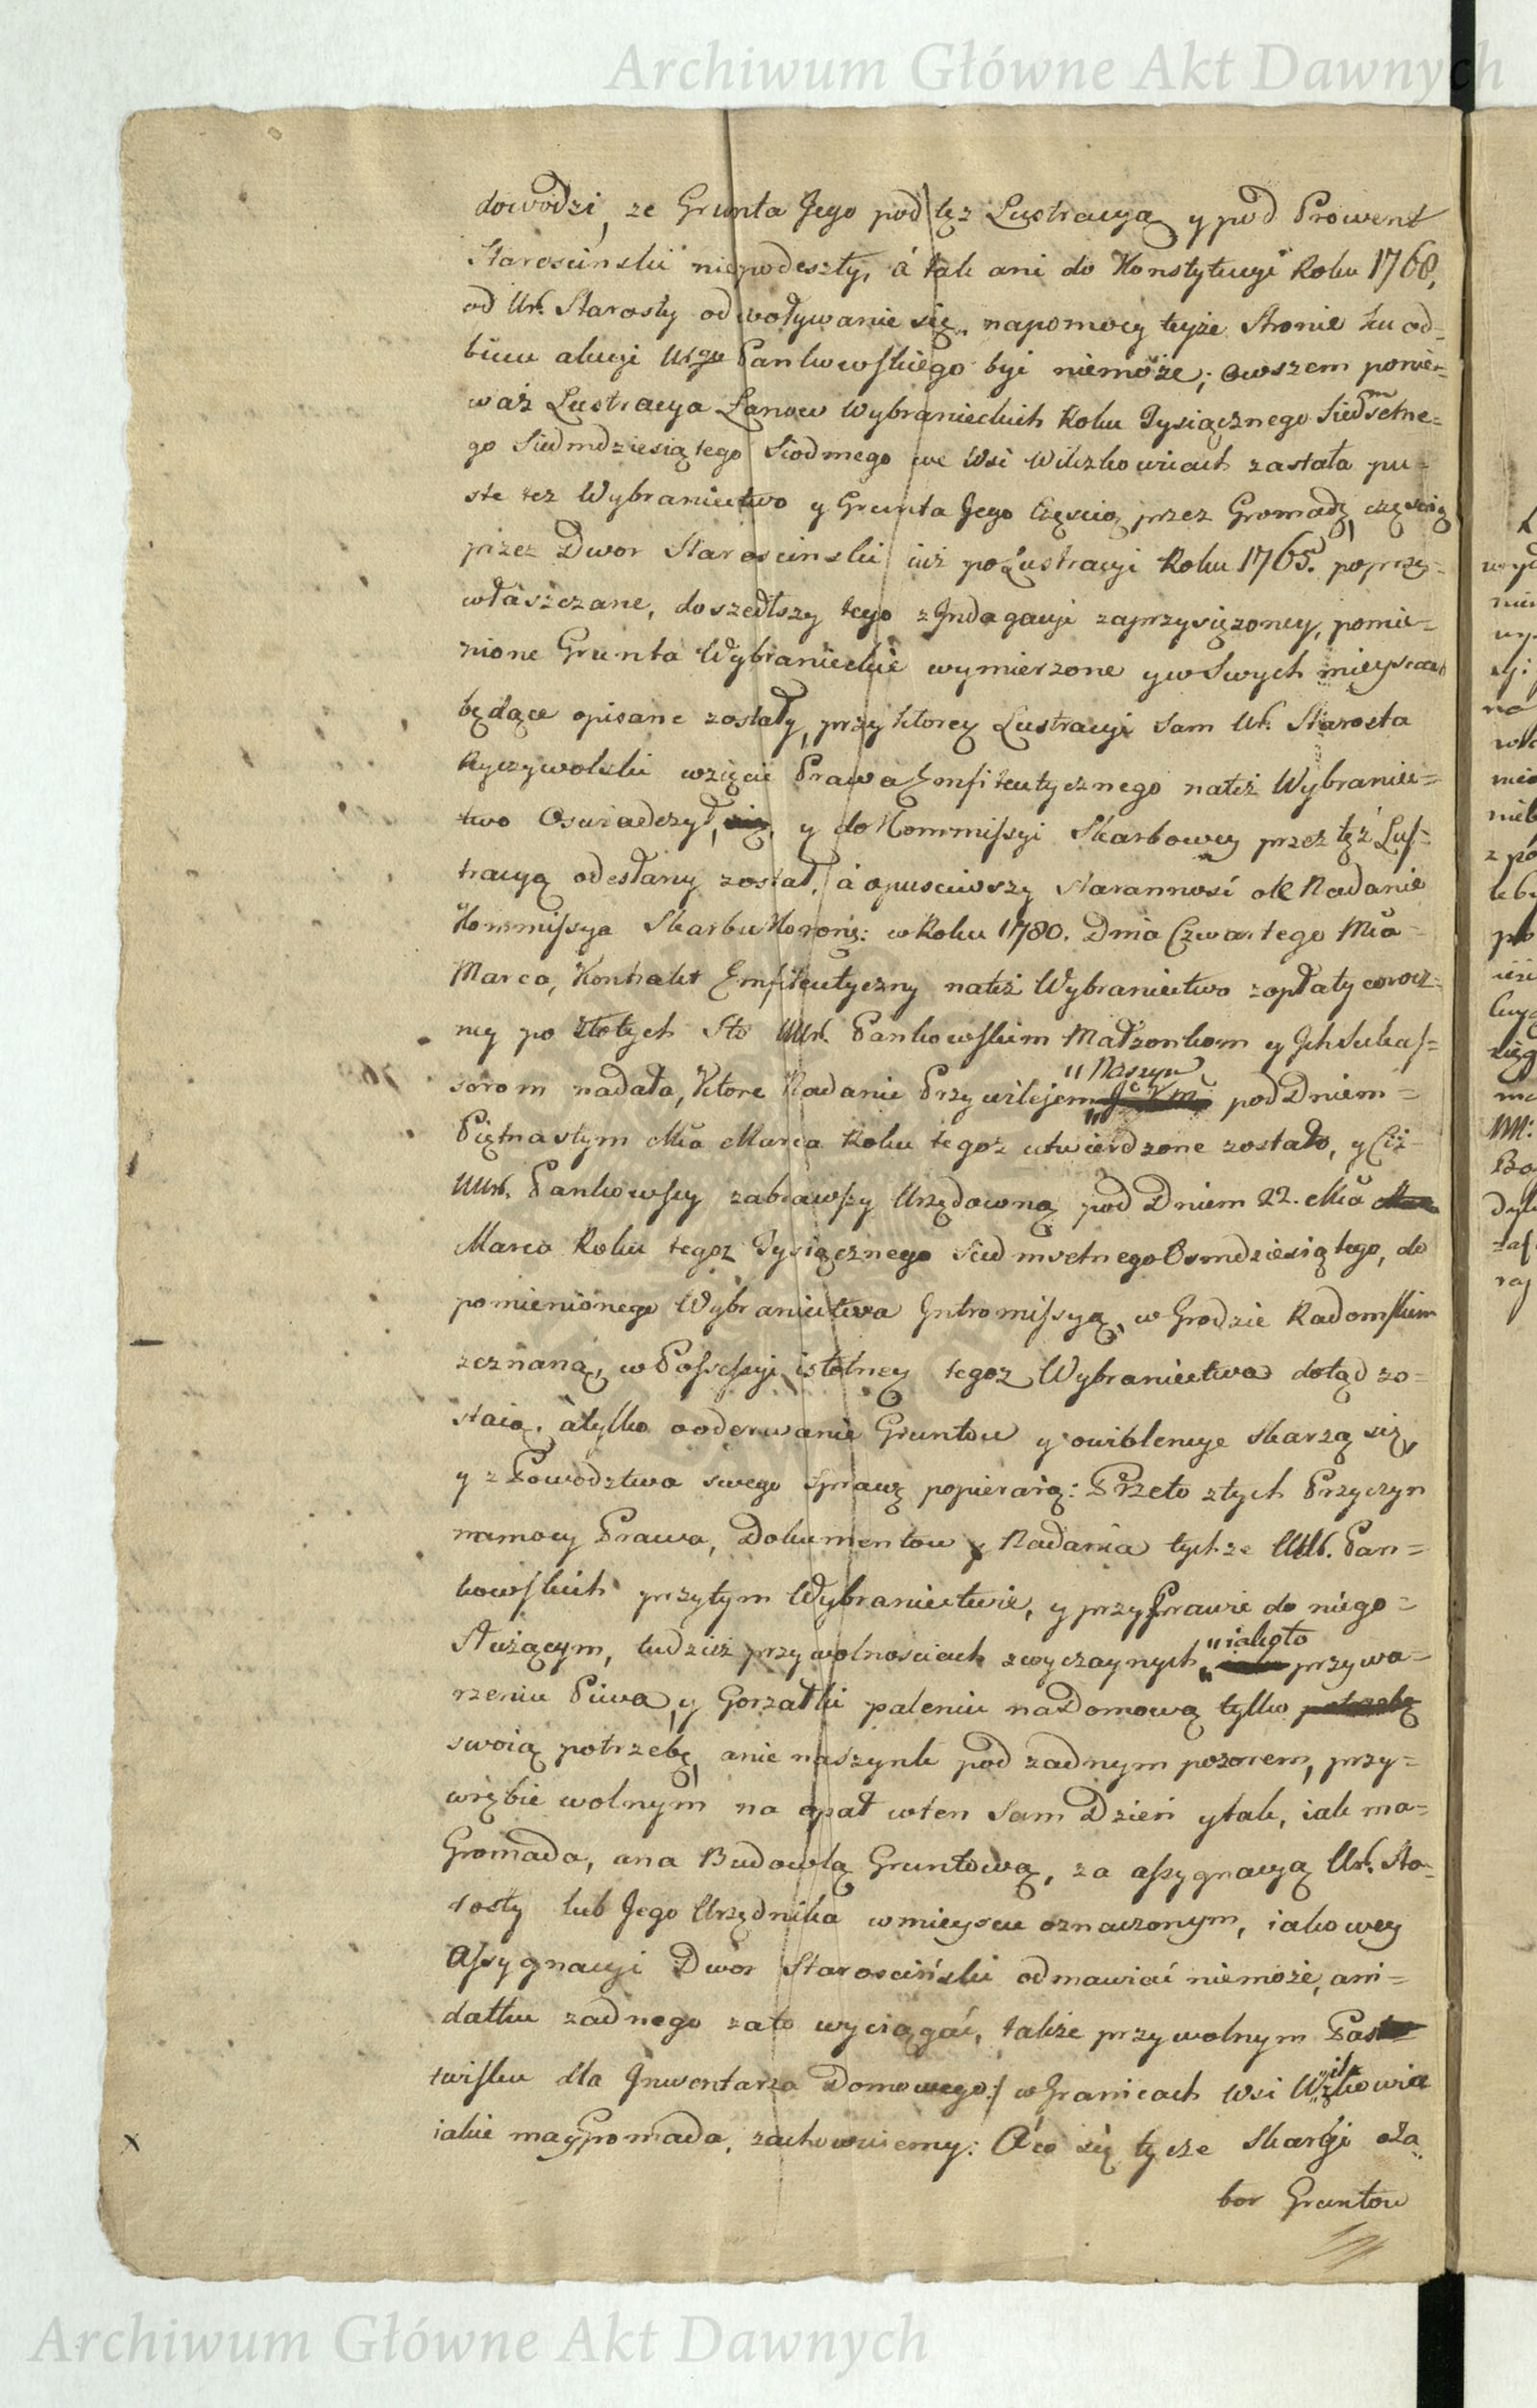 Archiwum Główne Akt Dawnych
dowodzi, ze Grunta Jego pod tęz Lustracyą y pod Prowent
Starościnski niepodeszły, á tak ani do Konstytucyi Roku 1768.
od Ur. Starosty odwoływanie się, napomocy teyże Stronie ku od=
biciu akcyi Urgo Pankowskiego byi niemoże; owszem ponie=
waż Lustracya Łanow Wybranieckich Roku Tysiącznego Siedmsetne=
go Siedmdziesiątego Siodmego we Wsi Wilczkowicach zastała pu=
ste tez Wybraniectwo y Grunta Jego Częscią przez Gromadę, częscią
przez Dwor Starościnski iuż po Lustracyi Roku 1765. poprzy=
właszczane, doszedłszy tego z Jndagacyi zaprzysięzoney, pomie=
nione Grunta Wybranieckie wymierzone y w Swych mieyscach
będące opisane zostały, przy ktorey Lustracyi sam Ur. Starosta
Ryczywolski wzięcie Prawa Emfiteutycznego natêż Wybraniec=
two Oswiadczył, się, y do Kommissyi Skarbowey przez tęż Lus=
tracyą odesłany został, á opusciwszy starannosć ote Nadanie
Kommissya Skarbu Koroñ: w Roku 1780. Dnia Czwartego Mca
Marca, Kontrakt Emfiteutyczny natêż Wybraniectwo zopłaty corocz=
ney po złotych Sto UUr. Pankowskim Małzonkom y Jch Sukces=
sorom nadała, Ktore Nadanie Przywilejem "Naszym" pod Dniem=
Piętnastym Mca Marca Roku tegoz utwierdzone zostało, y Ciż
UUr. Pankowscy zabrawszy Urzędowną pod Dniem 22. Mca
Marca Roku tegoz Tysiącznego siedmsetnego Osmdziesiątego, do
pomienionego Wybraniectwa Jntromissyą, w Grodzie Radomskim
zeznaną, w Possessyi istotney tegoz Wybraniectwa dotąd zo=
staią, átylko o oderwanie Gruntow y owiolencye skarzą się,
y z Powodztwa swego sprawę popieraią: Przeto ztych Przyczyn
namocy Prawa, Dokumentow y Nadania tychze UUr. Pan=
kowskich przytym Wybraniectwie, y przy Prawie do niego=
Służącym, tudzież przy wolnosciach zwyczaynych, "iakoto" przy wa=
rzeniu Piwa, y Gorzałki paleniu na Domową tylko potrzebę
swoią potrzebę, anie naszynk pod zadnym pozorem, przy=
wrębie wolnym na opał wten Sam Dzień y tak, iak ma=
Gromada, ana Budowlą Gruntową, za assygnacyą Ur. Sta=
rosty lub Jego Urzędnika w mieyscu oznaczonym, iakowey
Assygnacyi Dwor Starosciński odmawiać niemoże, ani=
datku zadnego zato wyciągać, także przy wolnym Pas
twisku dla Jnwentarza Domowego:/ w Granicach Wsi Wilczkowic
iakie ma Gromada, zachowuiemy: A co się tycze Skargi oza
bor Gruntow
Archiwum Główne Akt Dawnych